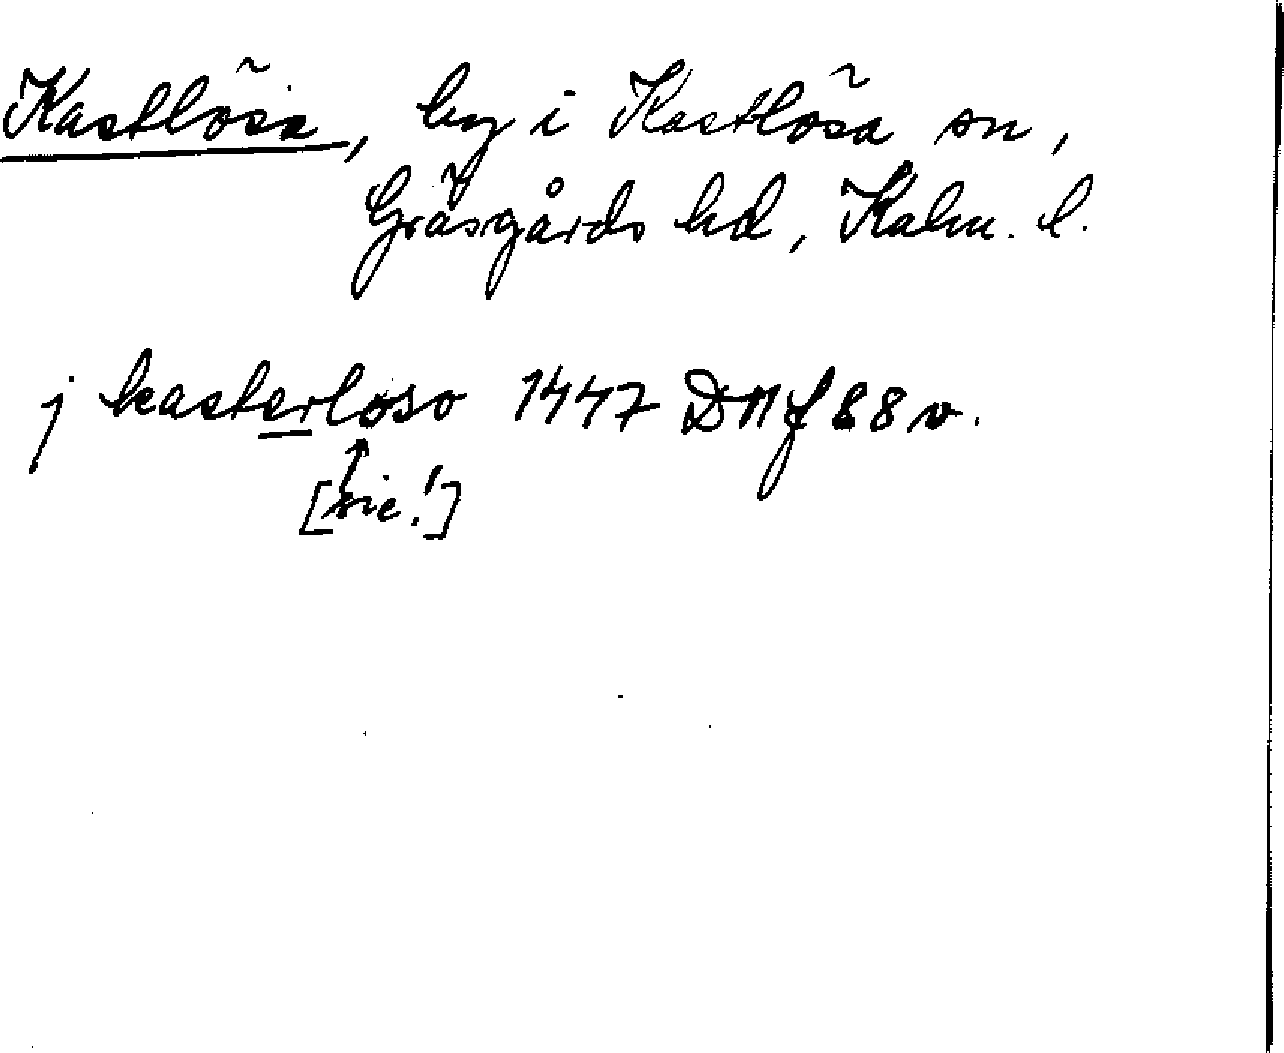 Kastlösa, by i Kastlösa sn,
Gräsgårds hd, Kalm. l.
j kasterloso 1447 DN f 88 v.
[sic!]